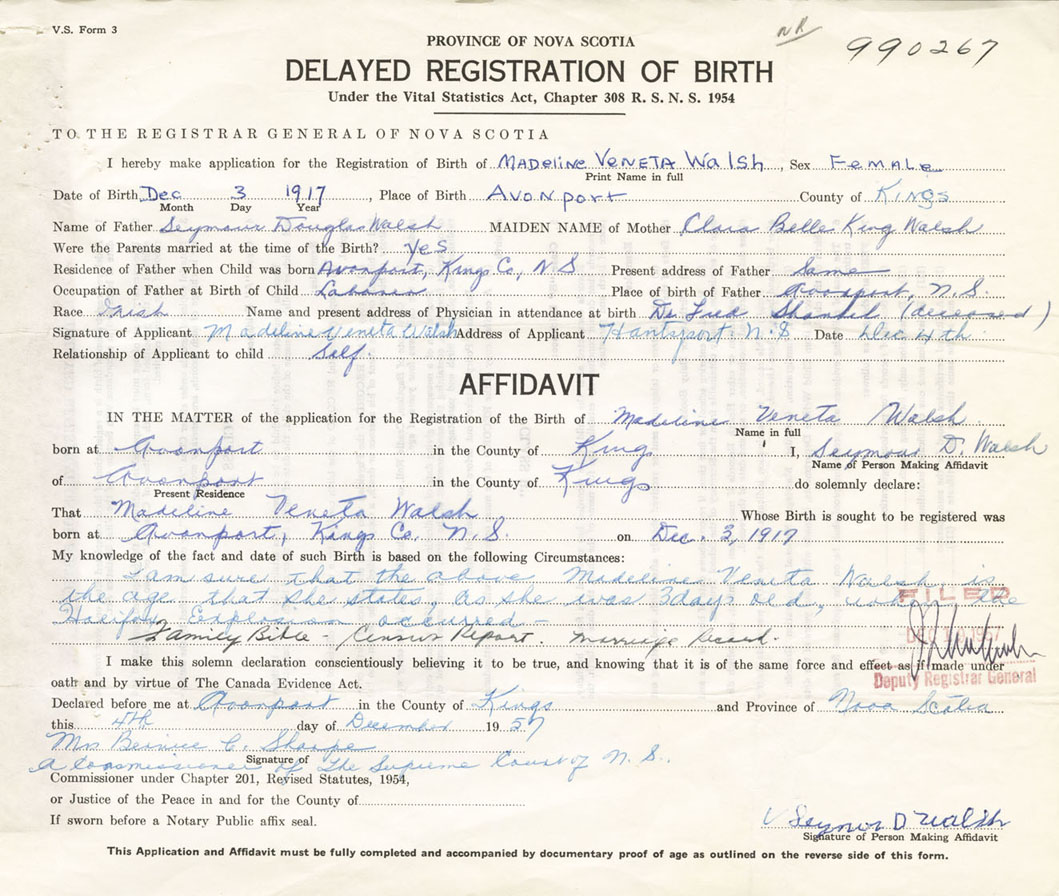 V.S. Form 3
NR
990267
PROVINCE OF NOVA SCOTIA
DELAYED REGISTRATION OF BIRTH
Under the Vital Statistics Act, Chapter 308 R. S. N. S. 1954
TO THE REGISTRAR GENERAL OF NOVA SCOTIA
I hereby make application for the Registration of Birth of MADELINE VENETA WALSH, Sex FEMALE
Print Name in full
Date of Birth Dec 3 1917, Place of Birth AVONPORT County of KINGS
Month Day Year
Name of Father Seymour Douglas Walsh MAIDEN NAME of Mother Clara Belle King Walsh
Were the Parents married at the time of the Birth? Yes
Residence of Father when Child was born Avonport, Kings Co, N S Present address of Father Same
Occupation of Father at Birth of Child Laborer Place of birth of Father Avonport, N.S.
Race Irish Name and present address of Physician in attendance at birth Dr Fred (deceased)
Signature of Applicant Madeline Veneta Walsh Address of Applicant Hantsport N.S Date Dec 4th
Relationship of Applicant to child Self.
AFFIDAVIT
IN THE MATTER of the application for the Registration of the Birth of Madeline Veneta Walsh
Name in full
born at Avonport in the County of Kings I, Seymour D. Walsh
Name of Person Making Affidavit
of Avonport in the County of Kings do solemnly declare:
Present Residence
That Madeline Veneta Walsh Whose Birth is sought to be registered was
born at Avonport, Kings Co. N.S. on Dec. 3, 1917
My knowledge of the fact and date of such Birth is based on the following Circumstances:
I am sure that the above Madeline Veneta Walsh is
the age that she states, as she was 3 days old, when the
Halifax Explosion occurred -
FILED
Family Bible - Census Report. Marriage Record.
I make this solemn declaration conscientiously believing it to be true, and knowing that it is of the same force and effect as if made under
oath and by virtue of The Canada Evidence Act.
Deputy Registrar General
Declared before me at Avonport in the County of Kings and Province of Nova Scotia
this 4th day of December 1957
Mrs Bernice C. Sharpe
Signature of
A Commissioner of The Supreme Court of N.S.
Commissioner under Chapter 201, Revised Statutes, 1954,
or Justice of the Peace in and for the County of
If sworn before a Notary Public affix seal.
Seymor D Walsh
Signature of Person Making Affidavit
This Application and Affidavit must be fully completed and accompanied by documentary proof of age as outlined on the reverse side of this form.